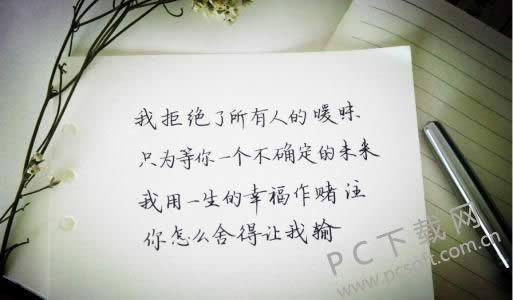 我拒绝了所有人的暧昧
只为等你一个不确定的未来
我用一生的幸福作赌注
你怎么舍得让我输
PC下载网
www.pcsoft.com.cn